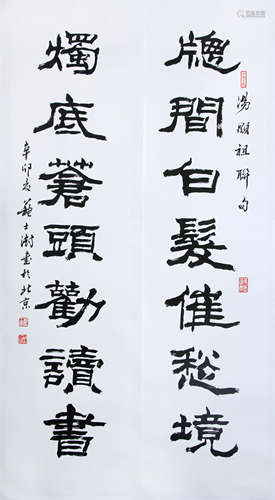 牕間白髮催愁境
湯顯祖聯句
燭底蒼頭勸讀書
辛卯 蘇士澍書於北京